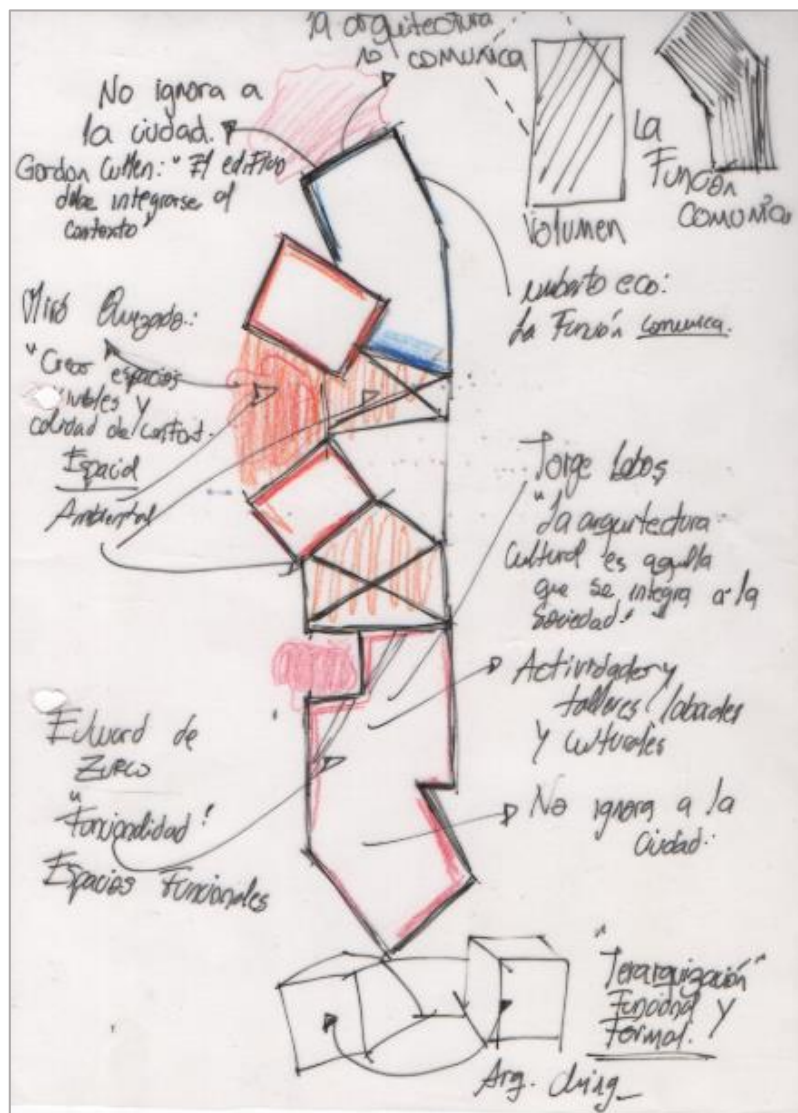 la arquitectura
no comunica
No ignora a
la ciudad.
Gordon Cullen: "El edificio
debe integrarse al
contexto"
Volumen
La
Función
comunica
umberto eco:
La Función comunica.
Miró Quezada:
"Crear espacios
y
calidad de confort.
Espacial
Ambiental
Jorge Lobos
"La arquitectura
Cultural es aquella
que se integra a la
Sociedad."
Actividades y
talleres laborales
y culturales
Edward de
Zurco
"Funcionalidad"
Espacios Funcionales
No ignora a la
Ciudad:
"Jerarquización"
Funcional y
Formal.
Arq. Ching